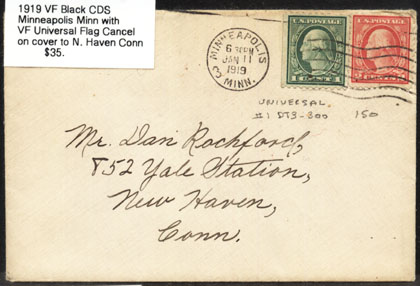 1919 VF Black CDS
Minneapolis Minn with
VF Universal Flag Cancel
on cover to N. Haven Conn
$35.
MINNEAPOLIS
6 PM
JAN 11
1919
MINN.
U.S. POSTAGE
1 CENT 1
U.S. POSTAGE
2 CENTS 2
UNIVERSAL
#1 DT3-300 150
Mr. Dan Rochford,
852 Yale Station,
New Haven,
Conn.